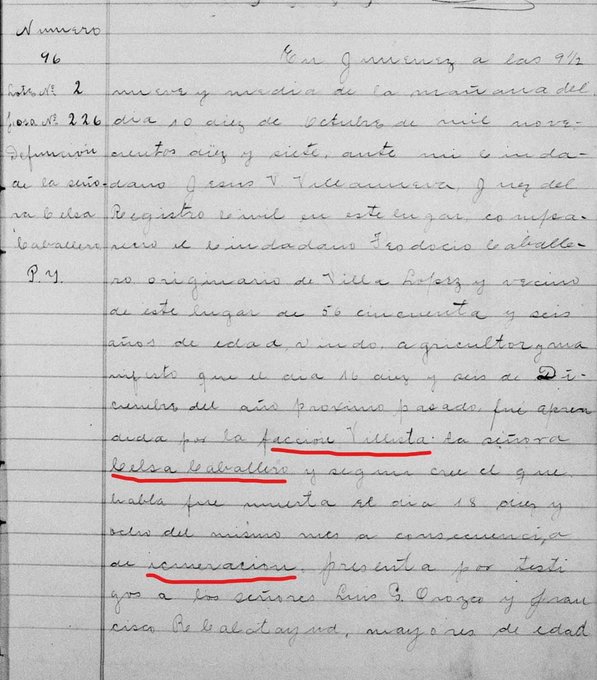 Numero
96
Lote Nº 2
fosa Nº 226
Defunción
de la seño-
ra Celsa
Caballero
P. Y.
En Jimenez a las 9½
nueve y media de la mañana del
dia 10 diez de Octubre de mil nove-
cientos diez y siete, ante mi Ciuda-
dano Jesus V. Villanueva, Juez del
Registro Civil en este lugar, compa-
recio el Ciudadano Teodocio Caballe-
ro originario de Villa Lopez y vecino
de este lugar de 56 cincuenta y seis
años de edad, viudo, agricultor y ma
nifesto que el dia 16 diez y seis de Di-
ciembre del año proximo pasado, fué apren
dida por la faccion Villista la señora
Celsa Caballero y segun cree el que
habla fue muerta el dia 18 diez y
ocho del mismo mes a consecuencia
de icineracion, presenta por testi
gos a los señores Luis G. Orozco y Fran
cisco R Calatayud, mayores de edad